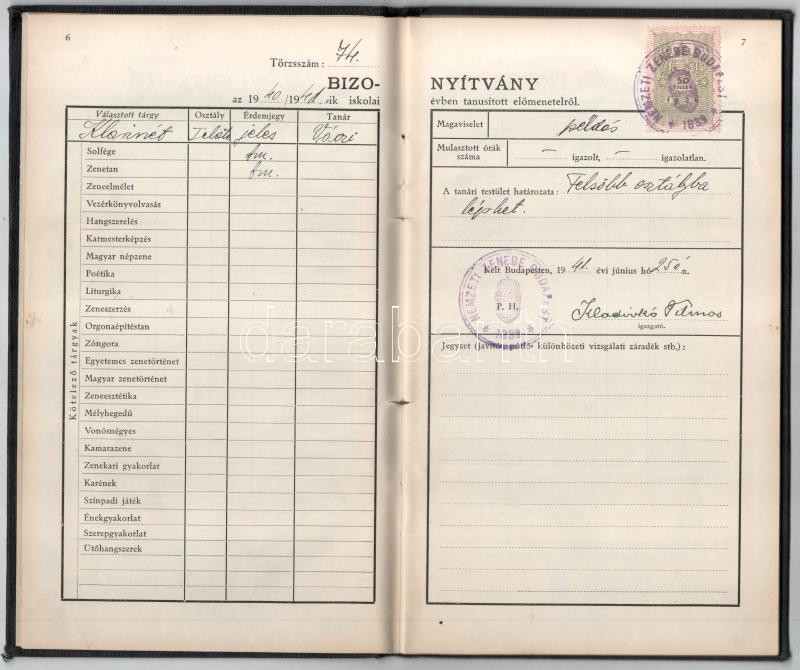 6
Törzsszám: 74.
BIZO-
az 1940/1941-ik iskolai
Választott tárgy Osztály Érdemjegy Tanár
Klarinét jeles Váczi
Kötelező tárgyak
Solfége fm.
Zenetan fm.
Zeneelmélet
Vezérkönyvolvasás
Hangszerelés
Karmesterképzés
Magyar népzene
Poétika
Liturgika
Zeneszerzés
Orgonaépítéstan
Zóngora
Egyetemes zenetörténet
Magyar zenetörténet
Zeneesztétika
Mélyhegedű
Vonósnégyes
Kamarazene
Zenekari gyakorlat
Karének
Színpadi játék
Énekgyakorlat
Szerepgyakorlat
Ütőhangszerek
7
NYÍTVÁNY
évben tanusított előmenetelről.
50
NEMZETI ZENEDE BUDAPEST
* 1839 *
Magaviselet példás
Mulasztott órák
száma – igazolt, – igazolatlan.
A tanári testület határozata: Felsőbb osztályba
léphet.
Kelt Budapesten, 1941. évi június hó 25én.
NEMZETI ZENEDE BUDAPEST
P. H.
* 1839 *
Kladivkó Vilmos
igazgató.
Jegyzet (javító-, pótló- különbözeti vizsgálati záradék stb.):
darabanth